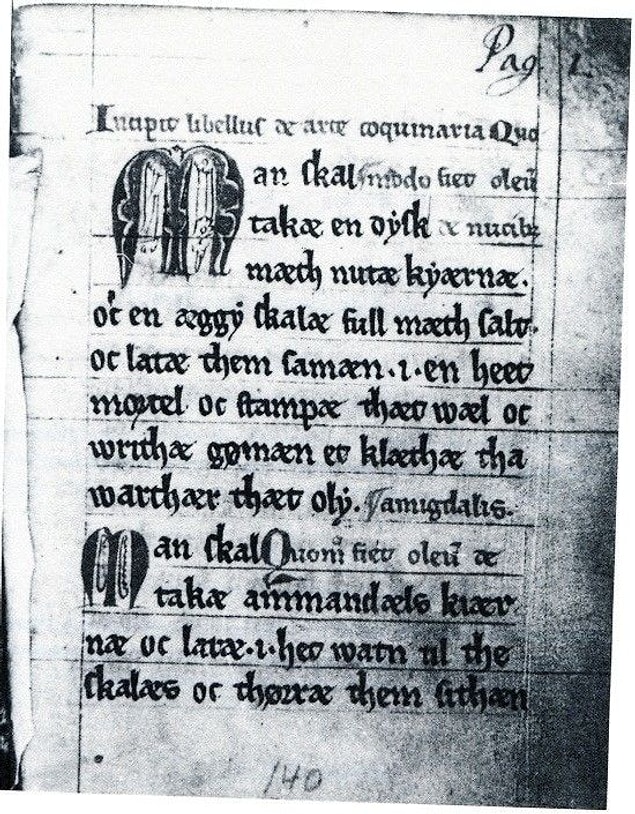 Pag 1.
Incipit libellus de arte coquinaria Quo
Man skal modo fiet oleū
takæ en dysk de nucibꝫ
mæth nutæ kyærnæ.
oc en æggy skalæ full mæth salt.
oc latæ them samæn.i.en heet
mortel oc stampæ thæt wæl oc
writhæ gømæn et klæthæ tha
warthær thæt oly. amigdalis.
Man skal Quom̄ fiet oleū de
takæ am̄mandæls kiær
næ oc latæ.i.het watn til the
skalæs oc thørræ them sithæn
140